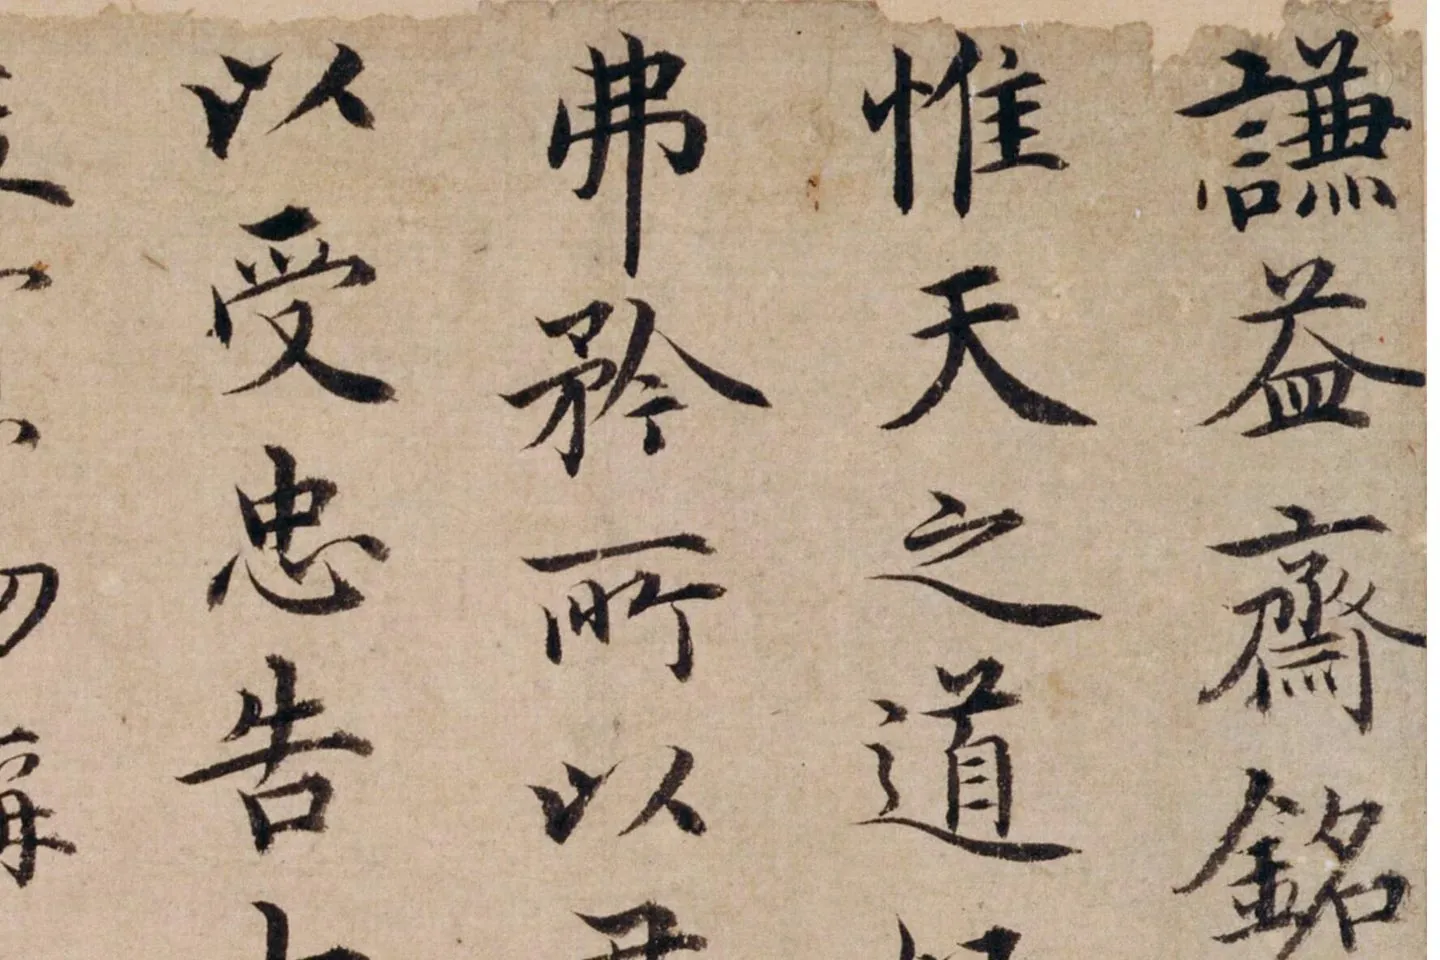 謙益齋銘
惟天之道
弗矜所以
以受忠告